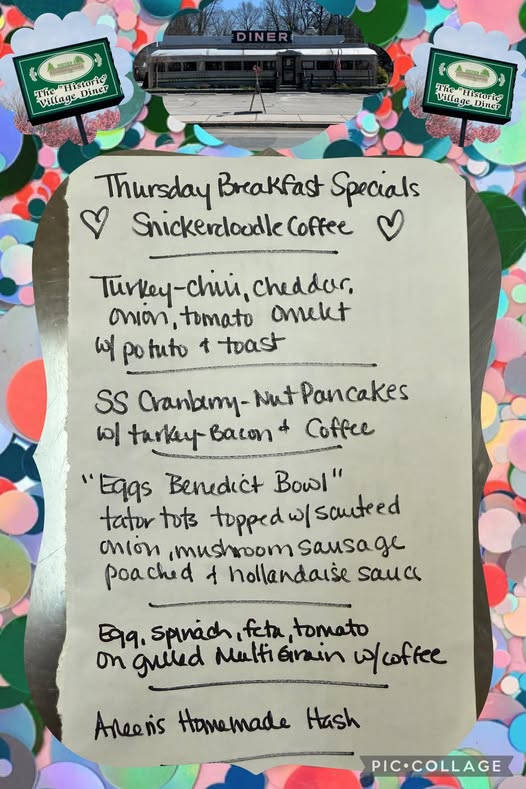 DINER
The "Historic"
Village Diner
The "Historic"
Village Diner
Thursday Breakfast Specials
♡ Snickerdoodle Coffee ♡
Turkey-chili, cheddar,
onion, tomato omelet
w/ potato & toast
SS Cranberry-Nut Pancakes
w/ turkey-Bacon & Coffee
"Eggs Benedict Bowl"
tator tots topped w/ sauteed
onion, mushroom sausage
poached & hollandaise sauce
Egg, spinach, feta, tomato
on grilled MultiGrain w/coffee
Homemade Hash
PIC•COLLAGE